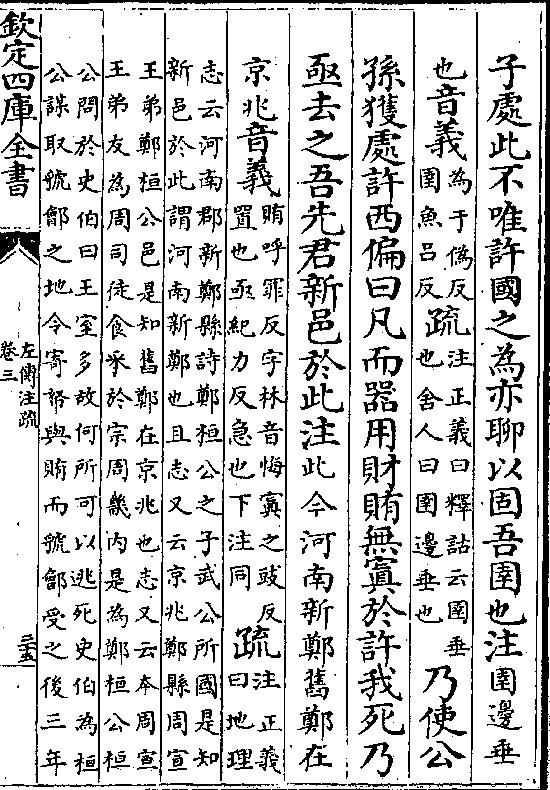 子處此不唯許國之為亦聊以固吾圉也注圉邊垂
也音義為于偽反圉魚呂反疏注正義曰釋詁云圉垂也舍人曰圉邊垂也乃使公
孫獲處許西偏曰凡而器用財賄無寘於許我死乃
亟去之吾先君新邑於此注此今河南新鄭舊鄭在
京兆音義賄呼罪反字林音悔寘之豉反置也亟紀力反急也下注同疏注正義曰地理
志云河南郡新鄭縣詩鄭桓公之子武公所國是知
新邑於此謂河南新鄭也且志又云京兆鄭縣周宣
王弟鄭桓公邑是知舊鄭在京兆也志又云本周宣
王弟友為周司徒食采於宗周畿內是為鄭桓公桓
公問於史伯曰王室多故何所可以逃死史伯為桓
公謀取虢鄶之地令寄帑與賄而虢鄶受之後三年
欽定四庫全書
左傳注疏
卷三
三五